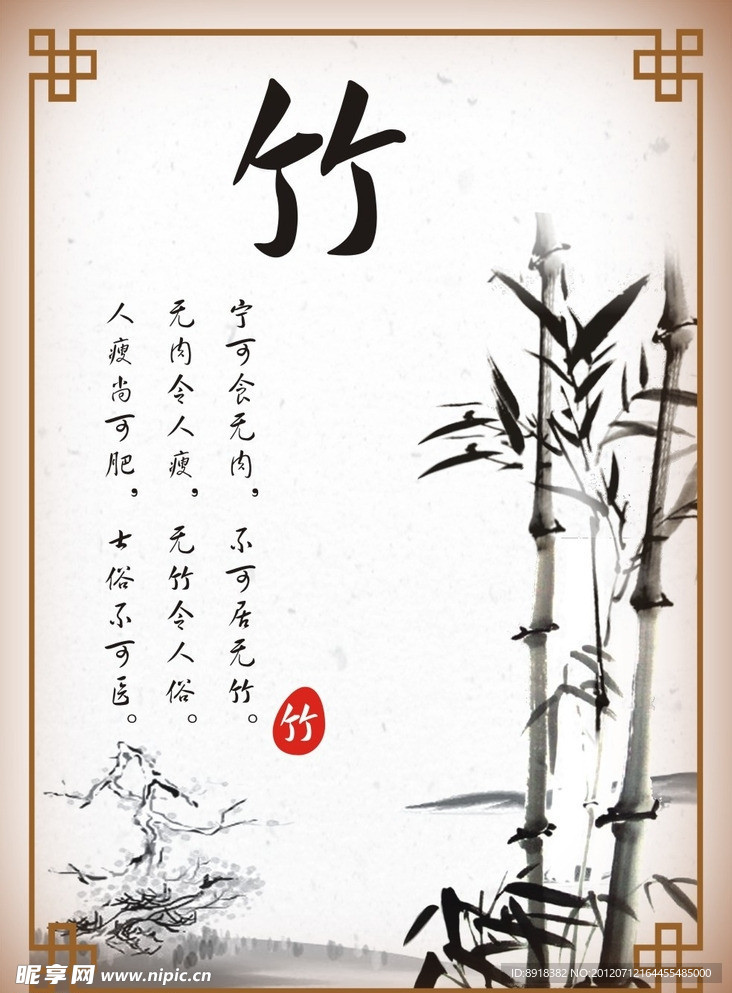 竹
宁可食无肉，不可居无竹。
无肉令人瘦，无竹令人俗。
人瘦尚可肥，士俗不可医。
竹
昵享网 www.nipic.cn
ID:8918382 NO:20120712164455485000